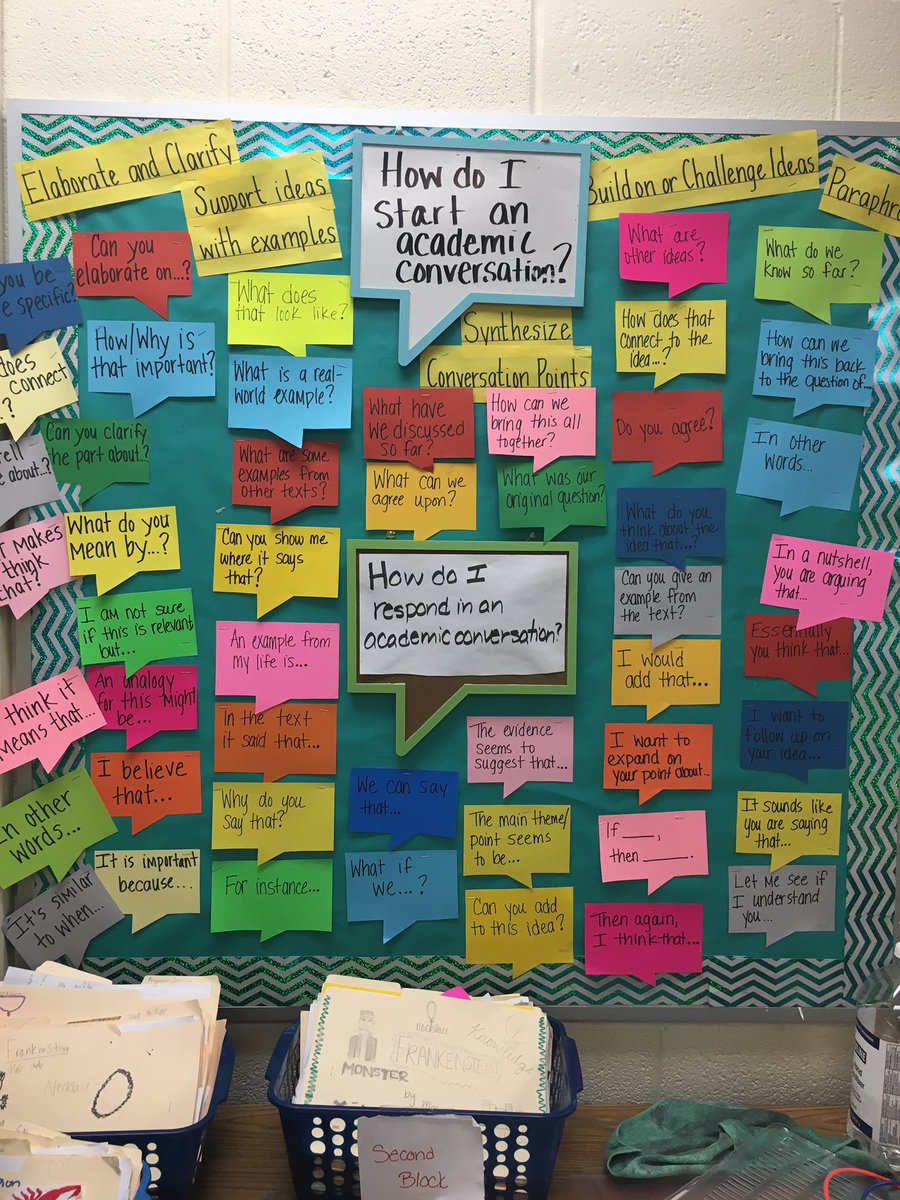 Elaborate and Clarify
Support ideas
with examples
How do I
start an
academic
conversation?
Build on or Challenge Ideas
Paraphr
you be
specific?
Can you
elaborate on...?
How/Why is
that important?
does
connect
...?
Can you clarify
the part about..?
tell
about..?
What do you
mean by...?
makes
think
that?
I am not sure
if this is relevant
but...
An analogy
for this might
be...
think it
means that...
I believe
that...
In other
words...
It is important
because...
It's similar
to when...
What does
that look like?
What is a real-
world example?
What are some
examples from
other texts?
Can you show me
where it says
that?
An example from
my life is...
In the text
it said that...
Why do you
say that?
For instance...
Synthesize
Conversation Points
What have
we discussed
so far?
How can we
bring this all
together?
What can we
agree upon?
What was our
original question?
How do I
respond in an
academic conversation?
The evidence
seems to
suggest that...
We can say
that...
The main theme/
point seems
to be...
What if
we...?
Can you add
to this idea?
What are
other ideas?
How does that
connect to the
idea...?
Do you agree?
What do you
think about the
idea that...?
Can you give an
example from
the text?
I would
add that...
I want to
expand on
your point about...
If ____,
then ____.
Then again,
I think that...
What do we
know so far?
How can we
bring this back
to the question of...
In other
words...
In a nutshell,
you are arguing
that...
Essentially
you think that...
I want to
follow up on
your idea...
It sounds like
you are saying
that...
Let me see if
I understand
you...
Frankenstein
Necklace
necklace
FRANKENSTEIN
MONSTER
by
Second
Block